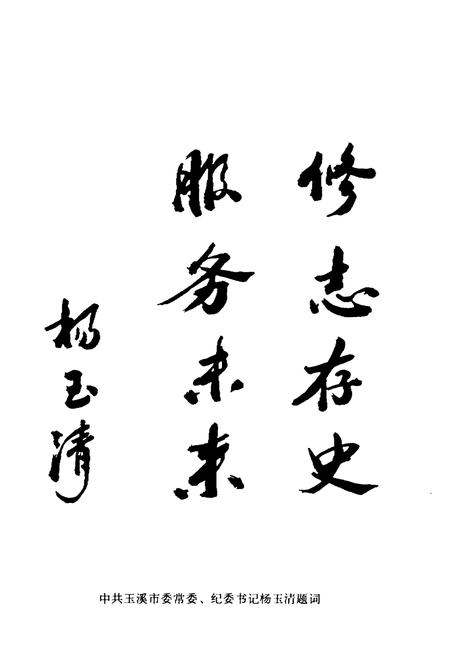 修志存史
服务未来
杨玉清
中共玉溪市委常委、纪委书记杨玉清题词